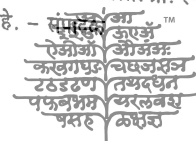 हे. – संपादक
आ TM
ऊएॲ
ऐओऑ औअंअः
कखगघङ चछजझञ
टठडढण तथदधन
पफबभम यरलवश
षसह ळक्षज्ञ